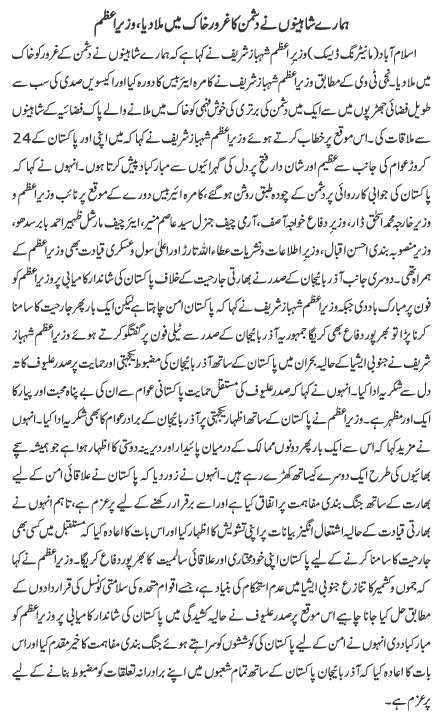 ہمارے شاہینوں نے دشمن کا غرور خاک میں ملا دیا، وزیراعظم
اسلام آباد (مانیٹرنگ ڈیسک) وزیراعظم شہباز شریف نے کہا ہے کہ ہمارے شاہینوں نے دشمن کے غرور کو خاک
میں ملا دیا۔ نجی ٹی وی کے مطابق وزیراعظم شہباز شریف نے کامرہ ائیر بیس کا دورہ کیا اور اکیسویں صدی کی سب سے
طویل فضائی جھڑپوں میں سے ایک میں دشمن کی برتری کی خوش فہمی کو خاک میں ملانے والے پاک فضائیہ کے شاہینوں
سے ملاقات کی۔ اس موقع پر خطاب کرتے ہوئے وزیراعظم شہباز شریف نے کہا کہ میں اپنی اور پاکستان کے 24
کروڑ عوام کی جانب سے عظیم اور شان دار فتح پر دل کی گہرائیوں سے مبارکباد پیش کرتا ہوں۔ انہوں نے کہا کہ
پاکستان کی جوابی کارروائی پر دشمن کے چودہ طبق روشن ہو گئے، کامرہ ائیر بیس دورے کے موقع پر نائب وزیراعظم و
وزیر خارجہ محمد اسحٰق ڈار، وزیر دفاع خواجہ آصف، آرمی چیف جنرل سید عاصم منیر، ایئر چیف مارشل ظہیر احمد بابر سدھو،
وزیر منصوبہ بندی احسن اقبال، وزیر اطلاعات و نشریات عطاء اللہ تارڑ اور اعلیٰ سول و عسکری قیادت بھی وزیراعظم کے
ہمراہ تھی۔ دوسری جانب آذربائیجان کے صدر نے بھارتی جارحیت کے خلاف پاکستان کی شاندار کامیابی پر وزیراعظم کو
فون پر مبارک باد دی جبکہ وزیراعظم شہباز شریف نے کہا کہ پاکستان امن چاہتا ہے لیکن ایک بار پھر جارحیت کا سامنا
کرنا پڑا تو بھرپور دفاع بھی کریگا جمہوریہ آذربائیجان کے صدر سے ٹیلی فون پر گفتگو کرتے ہوئے وزیراعظم شہباز
شریف نے جنوبی ایشیا کے حالیہ بحران میں پاکستان کے ساتھ آذربائیجان کی مضبوط یکجہتی اور حمایت پر صدر علیوف کا تہہ
دل سے شکریہ ادا کیا۔ انہوں نے کہا کہ صدر علیوف کی مستقل حمایت پاکستانی عوام سے ان کی بے پناہ محبت اور پیار کا
ایک اور مظہر ہے۔ وزیراعظم نے پاکستان کے ساتھ اظہار یکجہتی پر آذربائیجان کے برادر عوام کا بھی شکریہ ادا کیا۔ انہوں
نے مزید کہا کہ اس سے ایک بار پھر دونوں ممالک کے درمیان پائیدار اور دیرینہ دوستی کا اظہار ہوا ہے جو ہمیشہ سچے
بھائیوں کی طرح ایک دوسرے کیساتھ کھڑے رہے ہیں۔ انہوں نے زور دیا کہ پاکستان نے علاقائی امن کے لیے
بھارت کے ساتھ جنگ بندی مفاہمت پر اتفاق کیا ہے اور اسے برقرار رکھنے کے لیے پرعزم ہے، تاہم انہوں نے
بھارتی قیادت کے حالیہ اشتعال انگیز بیانات پر اپنی تشویش کا اظہار کیا اور اس بات کا اعادہ کیا کہ مستقبل میں کسی بھی
جارحیت کا سامنا کرنے کے لیے پاکستان اپنی خود مختاری اور علاقائی سالمیت کا بھرپور دفاع کریگا۔ وزیراعظم نے کہا
کہ جموں و کشمیر کا تنازع جنوبی ایشیا میں عدم استحکام کی بنیاد ہے، جسے اقوام متحدہ کی سلامتی کونسل کی قراردادوں کے
مطابق حل کیا جانا چاہیے اس موقع پر صدر علیوف نے حالیہ کشیدگی میں پاکستان کی شاندار کامیابی پر وزیراعظم کو
مبارکباد دی انہوں نے امن کے لیے پاکستان کی کوششوں کو سراہتے ہوئے جنگ بندی مفاہمت کا خیر مقدم کیا اور اس
بات کا اعادہ کیا کہ آذربائیجان پاکستان کے ساتھ تمام شعبوں میں اپنے برادرانہ تعلقات کو مضبوط بنانے کے لیے
پرعزم ہے۔